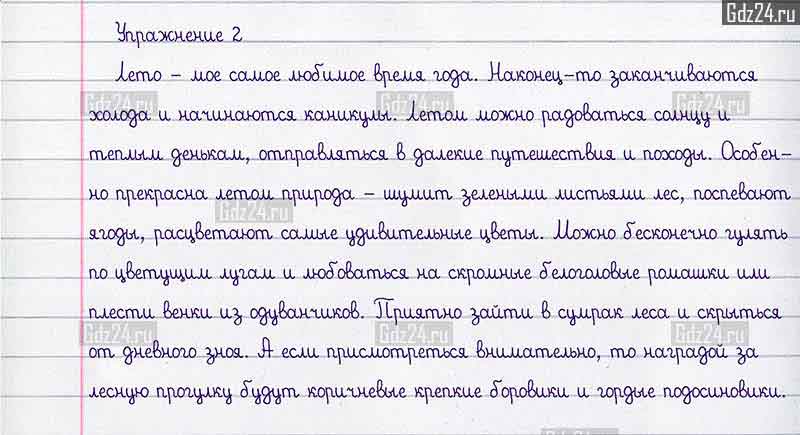 Gdz24.ru
Упражнение 2
Лето – мое самое любимое время года. Наконец-то заканчиваются
Gdz24.ru Gdz24.ru Gdz24.ru
холода и начинаются каникулы. Летом можно радоваться солнцу и
теплым денькам, отправляться в далекие путешествия и походы. Особен-
но прекрасна летом природа – шумит зелеными листьями лес, поспевают
Gdz24.ru Gdz24.ru
ягоды, расцветают самые удивительные цветы. Можно бесконечно гулять
по цветущим лугам и любоваться на скромные белоголовые ромашки или
плести венки из одуванчиков. Приятно зайти в сумрак леса и скрыться
Gdz24.ru Gdz24.ru Gdz24.ru
от дневного зноя. А если присмотреться внимательно, то наградой за
лесную прогулку будут коричневые крепкие боровики и гордые подосиновики.